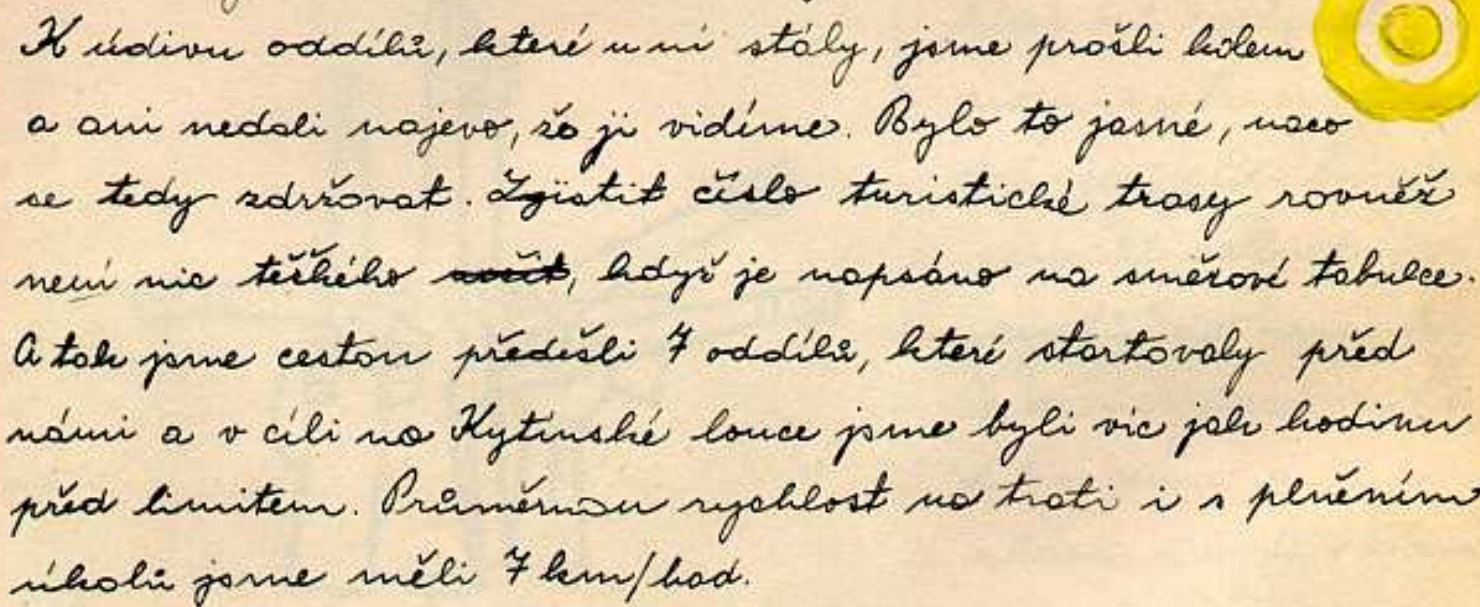 K údivu oddílů, které u ní stály, jsme prošli kolem
a ani nedali najevo, že ji vidíme. Bylo to jasné, naco
se tedy zdržovat. Zjistit číslo turistické trasy rovněž
není nic těžkého, když je napsáno na směrové tabulce.
A tak jsme cestou předešli 7 oddílů, které startovaly před
námi a v cíli na Kytínské louce jsme byli víc jak hodinu
před limitem. Průměrnou rychlost na trati i s plněním
úkolů jsme měli 7 km/hod.